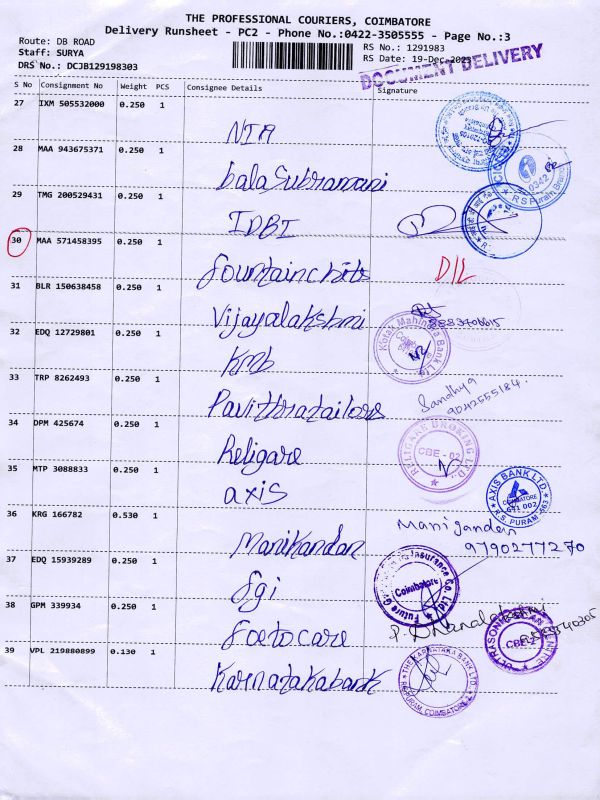 THE PROFESSIONAL COURIERS, COIMBATORE
Delivery Runsheet - PC2 - Phone No.:0422-3505555 - Page No.:3
Route: DB ROAD
RS No.: 1291983
Staff: SURYA
RS Date: 19-Dec-2023
DRS No.: DCJB129198303
DOCUMENT DELIVERY
S No Consignment No Weight PCS Consignee Details Signature
27 IXM 505532000 0.250 1
NIA
28 MAA 943675371 0.250 1
bala Subramani
R S Puram
29 TMG 200529431 0.250 1
IDBI
30 MAA 571458395 0.250 1
fountain chits D/L
31 BLR 150638458 0.250 1
Vijayalakshmi
32 EDQ 12729801 0.250 1
KMB
Kotak Mahindra Bank Ltd
33 TRP 8262493 0.250 1
Pavithra tailors
Sandhya
9042555184
34 DPM 425674 0.250 1
Religare
RELIGARE BROKING LTD.
CBE - 02
35 MTP 3088833 0.250 1
axis
AXIS BANK LTD
COIMBATORE
641 002
R.S. PURAM
36 KRG 166782 0.530 1
Manikandan
Manigandan
9790277270
37 EDQ 15939289 0.250 1
fgi
Insurance Co. Ltd
Coimbatore
38 GPM 339934 0.250 1
foetocare
P. Dhanalakshmi
39 VPL 219880899 0.130 1
Karnataka bank
THE KARNATAKA BANK LTD.
R.S. PURAM, COIMBATORE-2